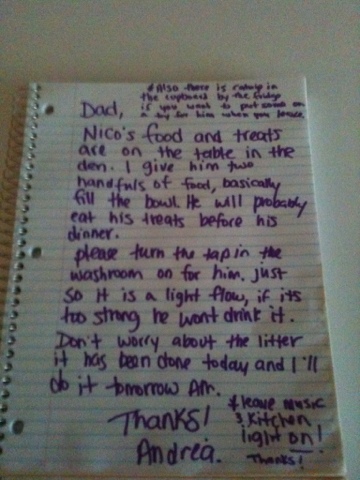 * Also there is catnip in
the cupboard by the fridge
if you want to put some on
a toy for him when you leave.
Dad,
Nico's food and treats
are on the table in the
den. I give him two
handfuls of food, basically
fill the bowl. He will probably
eat his treats before his
dinner.
please turn the tap in the
washroom on for him. just
so it is a light flow, if its
too strong he wont drink it.
Don't worry about the litter
it has been done today and I'll
do it tomorrow Am.
Thanks!
Andrea.
* leave music
& Kitchen
light on!
Thanks!